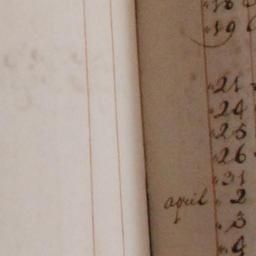 18
19
21
24
25
26
31
april 2
3
9